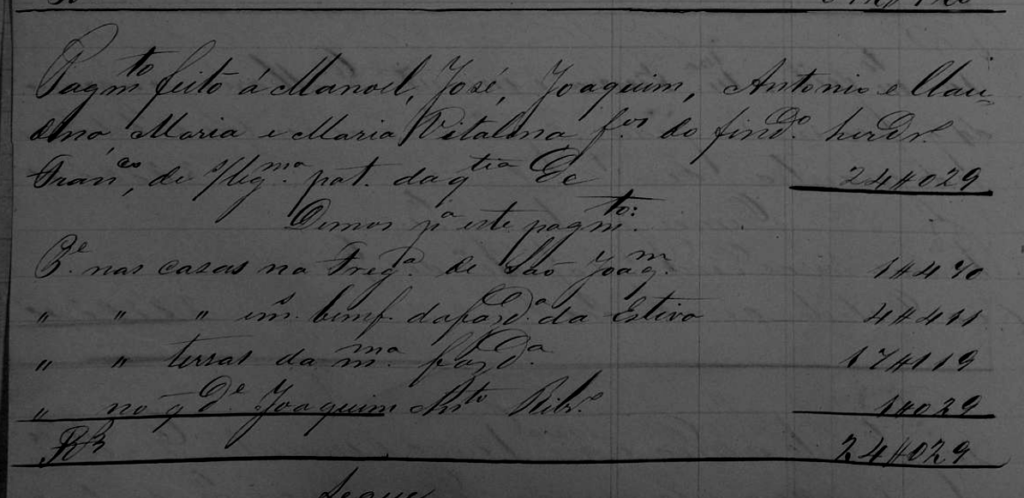 Pagmto feito á Manoel, José, Joaquim, Antonio e Clau-
dina, Maria e Maria Vitalina fos do findo herdro
Franco, de legma pat. da qtia De 24#029
Demos pa este pagmto:
Pe nas casas na Frega de São Joaqm 1#470
" " " im. bemf. da fazda da Estiva 4#411
" " terras da mma fazda 17#119
" no q De Joaquim Anto Ribro 1#029
Rs 24#029
Segue